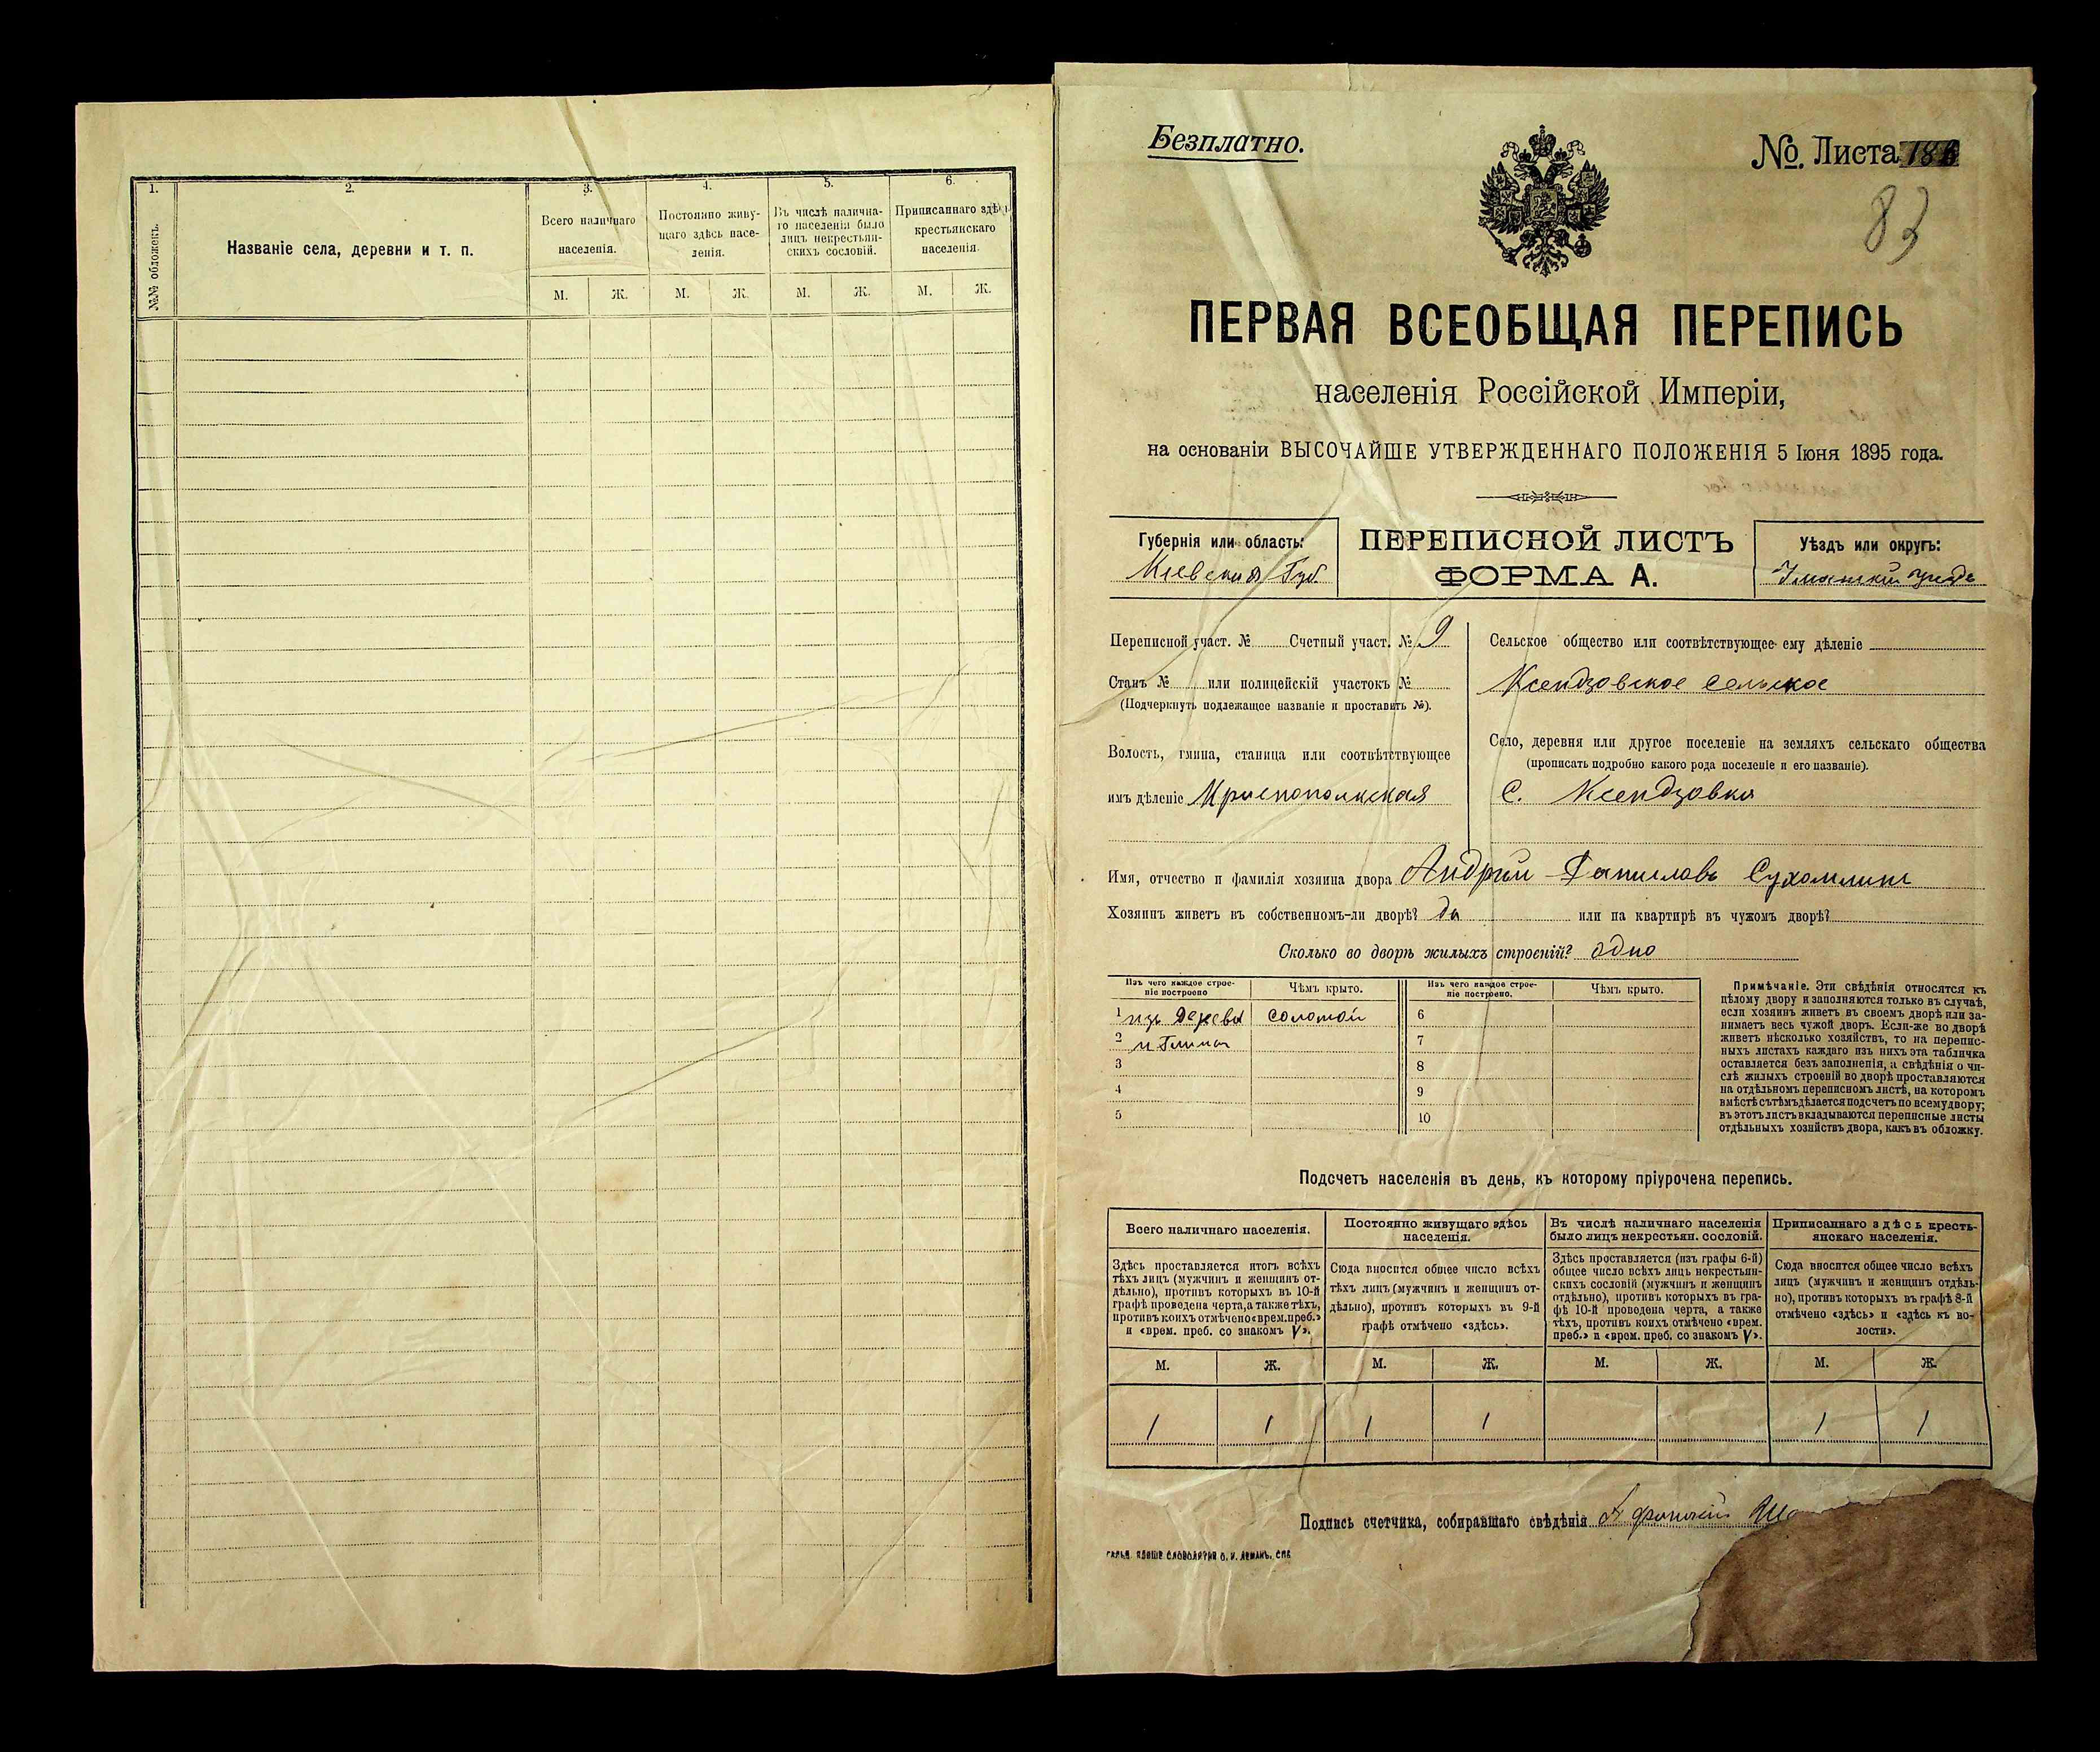 1.
2.
3.
4.
5.
6.
№№ обложекъ.
Названіе села, деревни и т. п.
Всего наличнаго
населенія.
Постоянно живу-
щаго здѣсь насе-
ленія.
Въ числѣ налична-
го населенія было
лицъ некрестьян-
скихъ сословій.
Приписаннаго здѣсь
крестьянскаго
населенія.
М. Ж. М. Ж. М. Ж. М. Ж.
Безплатно.
№. Листа
83
ПЕРВАЯ ВСЕОБЩАЯ ПЕРЕПИСЬ
населенія Россійской Имперіи,
на основаніи ВЫСОЧАЙШЕ УТВЕРЖДЕННАГО ПОЛОЖЕНІЯ 5 Іюня 1895 года.
Губернія или область:
Кіевская Губ.
ПЕРЕПИСНОЙ ЛИСТЪ
ФОРМА А.
Уѣздъ или округъ:
Уманскій уѣздъ
Переписной участ. № Счетный участ. № 9
Станъ № или полицейскій участокъ №
(Подчеркнуть подлежащее названіе и проставить №).
Волость, гмина, станица или соотвѣтствующее
имъ дѣленіе
Сельское общество или соотвѣтствующее ему дѣленіе
Ксендзовское сельское
Село, деревня или другое поселеніе на земляхъ сельскаго общества
(прописать подробно какого рода поселеніе и его названіе).
С. Ксендзовка
Имя, отчество и фамилія хозяина двора Андрій Даниловъ Сухомлинъ
Хозяинъ живетъ въ собственномъ-ли дворѣ? да или на квартирѣ въ чужомъ дворѣ?
Сколько во дворѣ жилыхъ строеній? одно
Изъ чего каждое строе-
ніе построено
Чѣмъ крыто.
Изъ чего каждое строе-
ніе построено.
Чѣмъ крыто.
1 изъ дерева соломой 6
2 и глины 7
3 8
4 9
5 10
Примѣчаніе. Эти свѣдѣнія относятся къ
цѣлому двору и заполняются только въ случаѣ,
если хозяинъ живетъ въ своемъ дворѣ или за-
нимаетъ весь чужой дворъ. Если-же во дворѣ
живетъ нѣсколько хозяйствъ, то на перепис-
ныхъ листахъ каждаго изъ нихъ эта табличка
оставляется безъ заполненія, а свѣдѣнія о чи-
слѣ жилыхъ строеній во дворѣ проставляются
на отдѣльномъ переписномъ листѣ, на которомъ
вмѣстѣ съ тѣмъ дѣлается подсчетъ по всему двору;
въ этотъ листъ вкладываются переписные листы
отдѣльныхъ хозяйствъ двора, какъ въ обложку.
Подсчетъ населенія въ день, къ которому пріурочена перепись.
Всего наличнаго населенія.
Постоянно живущаго здѣсь
населенія.
Въ числѣ наличнаго населенія
было лицъ некрестьян. сословій.
Приписаннаго здѣсь кресть-
янскаго населенія.
Здѣсь проставляется итогъ всѣхъ
тѣхъ лицъ (мужчинъ и женщинъ от-
дѣльно), противъ которыхъ въ 10-й
графѣ проведена черта, а также тѣхъ,
противъ коихъ отмѣчено «врем. преб.»
и «врем. преб. со знакомъ V».
Сюда вносится общее число всѣхъ
тѣхъ лицъ (мужчинъ и женщинъ от-
дѣльно), противъ которыхъ въ 9-й
графѣ отмѣчено «здѣсь».
Здѣсь проставляется (изъ графы 6-й)
общее число всѣхъ лицъ некрестьян-
скихъ сословій (мужчинъ и женщинъ
отдѣльно), противъ которыхъ въ гра-
фѣ 10-й проведена черта, а также
тѣхъ, противъ коихъ отмѣчено «врем.
преб.» и «врем. преб. со знакомъ V».
Сюда вносится общее число всѣхъ
лицъ (мужчинъ и женщинъ отдѣль-
но), противъ которыхъ въ графѣ 8-й
отмѣчено «здѣсь» и «здѣсь къ во-
лости».
М. Ж. М. Ж. М. Ж. М. Ж.
1 1 1 1 1 1
Подпись счетчика, собиравшаго свѣдѣнія